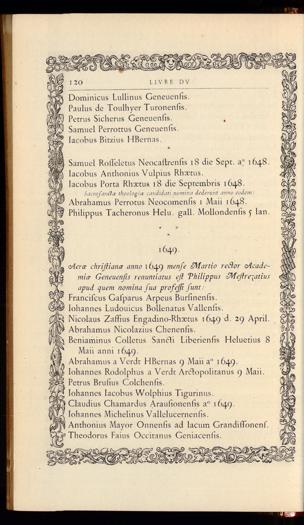 120
LIVRE DV
Dominicus Lullinus Geneuenſis.
Paulus de Toulhyer Turonenſis.
Petrus Sicherus Geneuenſis.
Samuel Perrottus Geneuenſis.
Iacobus Bitzius HBernas.
*
* *
Samuel Roſſeletus Neocaſtrenſis 18 die Sept. aº 1648.
Iacobus Anthonius Vulpius Rhætus.
Iacobus Porta Rhætus 18 die Septembris 1648.
Sacroſanctæ theologiæ candidati nomina dederunt anno eodem:
Abrahamus Perrotus Neocomenſis 1 Maii 1648.
Philippus Tacheronus Helu. gall. Mollondenſis 5 Ian.
*
* *
1649.
Aeræ chriſtianæ anno 1649 menſe Martio rector Acade-
miæ Geneuenſis renuntiatus eſt Philippus Meſtreʒatius
apud quem nomina ſua profeſſi ſunt:
Franciſcus Gaſparus Arpeus Burſinenſis.
Iohannes Ludouicus Bollenatus Vallenſis.
Nicolaus Zaffius Engadino-Rhætus 1649 d. 29 April.
Abrahamus Nicolazius Chenenſis.
Beniaminus Colletus Sancti Liberienſis Heluetius 8
Maii anni 1649.
Abrahamus a Verdt HBernas 9 Maii aº 1649.
Iohannes Rodolphus a Verdt Arctopolitanus 9 Maii.
Petrus Bruſius Colchenſis.
Iohannes Iacobus Wolphius Tigurinus.
Claudius Chamardus Arauſionenſis aº 1649.
Iohannes Michelinus Vallelucernenſis.
Anthonius Mayor Onnenſis ad lacum Grandiſſonenſ.
Theodorus Faius Occitanus Geniacenſis.